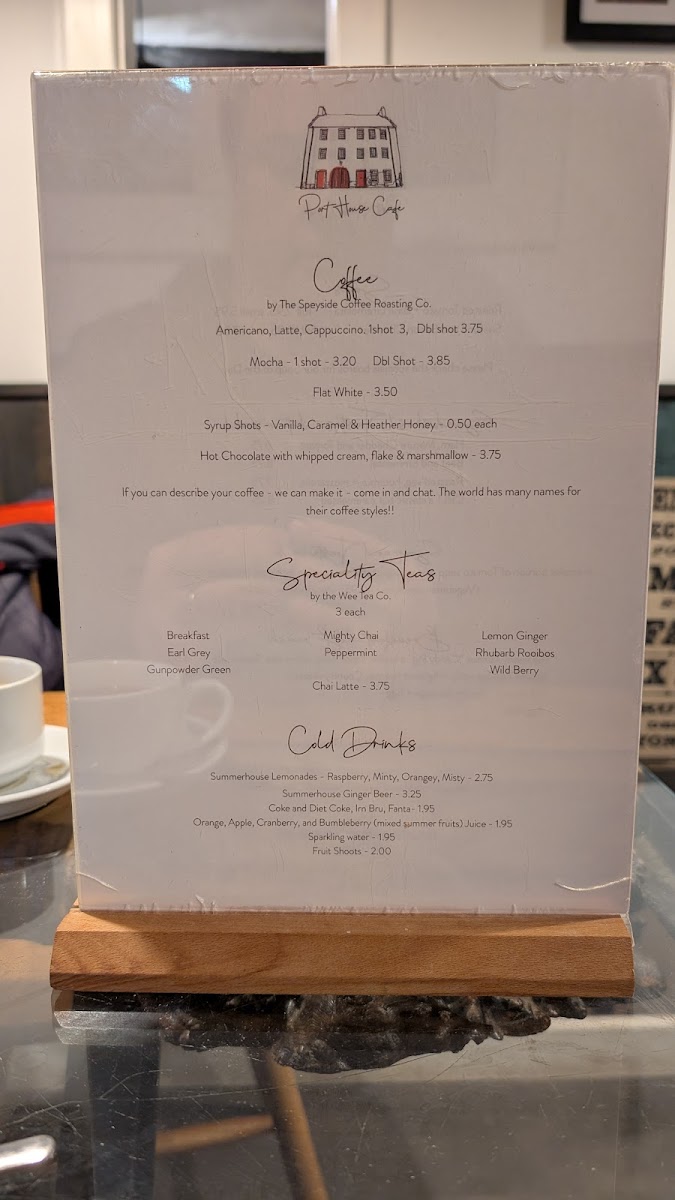 Port House Cafe
Coffee
by The Speyside Coffee Roasting Co.
Americano, Latte, Cappuccino. 1shot 3, Dbl shot 3.75
Mocha - 1 shot - 3.20 Dbl Shot - 3.85
Flat White - 3.50
Syrup Shots - Vanilla, Caramel & Heather Honey - 0.50 each
Hot Chocolate with whipped cream, flake & marshmallow - 3.75
If you can describe your coffee - we can make it - come in and chat. The world has many names for
their coffee styles!!
Speciality Teas
by the Wee Tea Co.
3 each
Breakfast Mighty Chai Lemon Ginger
Earl Grey Peppermint Rhubarb Rooibos
Gunpowder Green Wild Berry
Chai Latte - 3.75
Cold Drinks
Summerhouse Lemonades - Raspberry, Minty, Orangey, Misty - 2.75
Summerhouse Ginger Beer - 3.25
Coke and Diet Coke, Irn Bru, Fanta- 1.95
Orange, Apple, Cranberry, and Bumbleberry (mixed summer fruits) Juice - 1.95
Sparkling water - 1.95
Fruit Shoots - 2.00